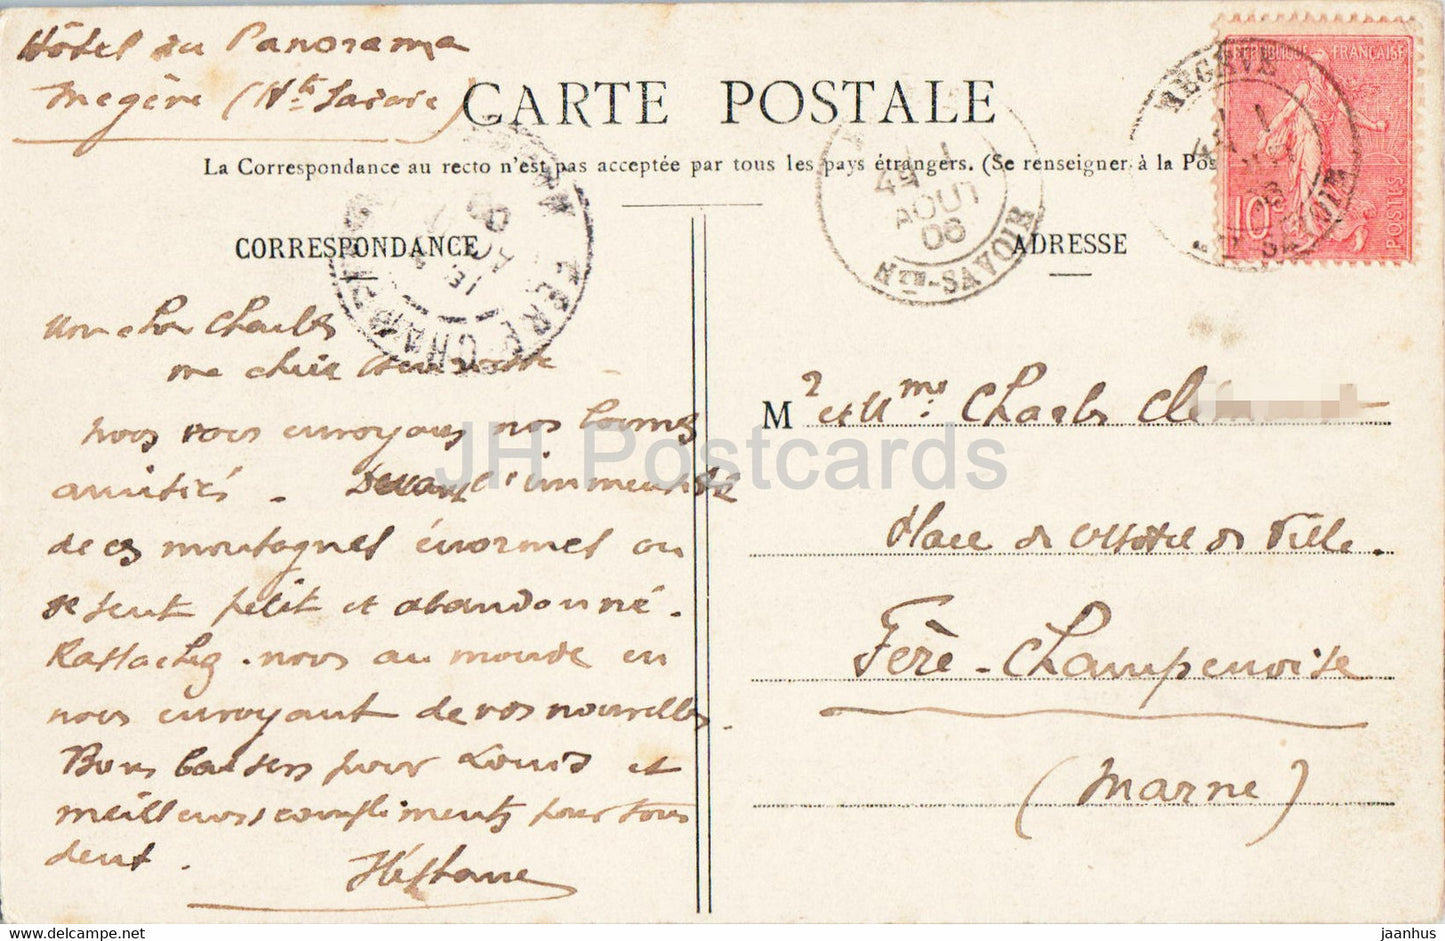 Hôtel du Panorama
Megève (Hte Savoie)
CARTE POSTALE
La Correspondance au recto n'est pas acceptée par tous les pays étrangers. (Se renseigner à la Pos
CORRESPONDANCE
ADRESSE
REPUBLIQUE FRANÇAISE
10
POSTES
MEGÈVE
HTE SAVOIE
1
AOUT
06
HTE-SAVOIE
FERE CHAMPENOISE
Mon cher Charles
ma chère
nous vous envoyons nos bonnes
amitiés. Devant l'immensité
de ces montagnes énormes on
se sent petit et abandonné.
Rattachez-nous au monde en
nous envoyant de vos nouvelles.
Bons baisers pour Louis et
meilleurs compliments pour tous
deux.
Stéphane
Mr et Mme Charles Cle
Place de l'Hôtel de Ville.
Fère-Champenoise
(Marne)
JH Postcards
jaanhus @ delcampe.net